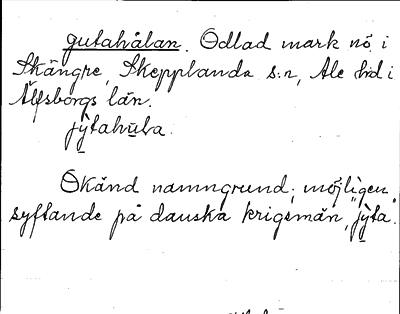 gutahålan. Odlad mark nö. i
Skångre, Skepplanda s:n, Ale hd i
Älfsborgs län.
jy̆tahula.
Okänd namngrund; möjligen
syftande på danska krigsmän, "jyta".